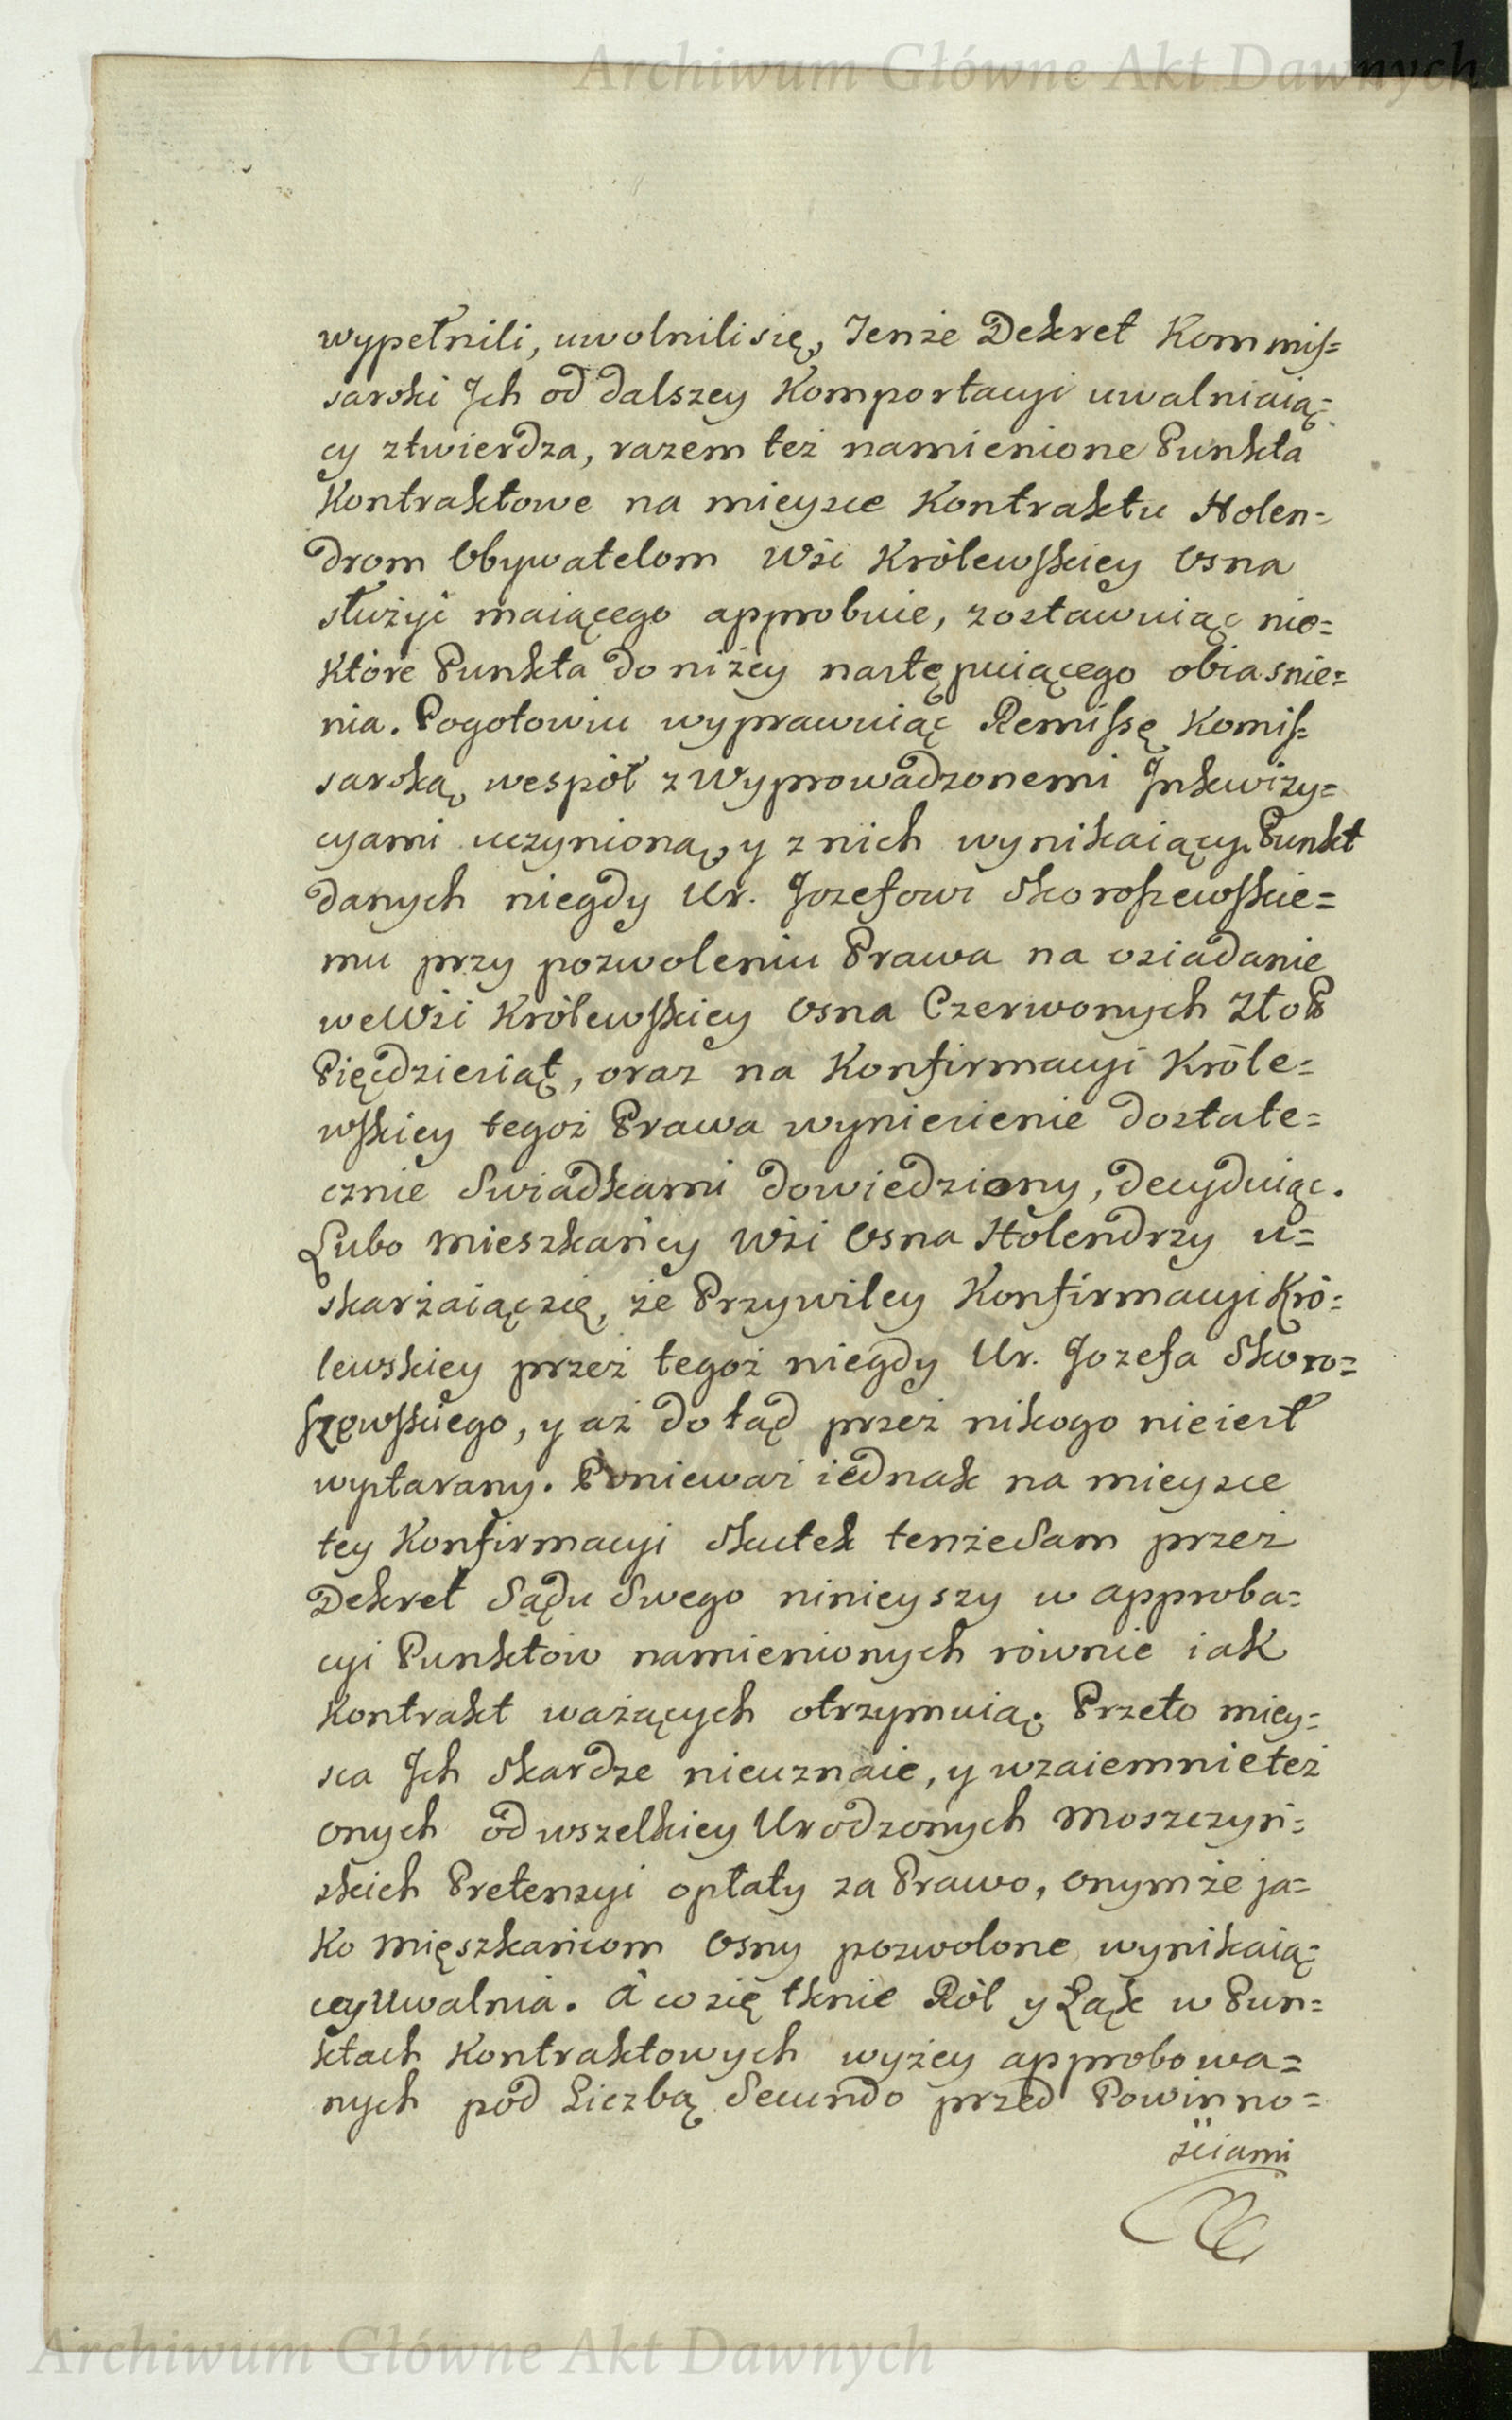 Archiwum Główne Akt Dawnych
wypełnili, uwolnili się, Tenże Dekret Kommis=
sarski Jch od dalszey Komportacyi uwalniaią=
cy ztwierdza, razem też namienione Punkta
Kontraktowe na mieysce Kontraktu Holen=
drom Obywatelom Wśi Królewskiey Osna
służyć maiącego approbuie, zostawuiąc nie=
które Punkta do niżey następuiącego obiasnie=
nia. Pogotowiu wyprawuiąc Remissę Komis=
sarską, wespół z Wyprowadzonemi Jnkwizy=
cyami uczynioną, y z nich wynikaiący Punkt
danych niegdy Ur. Jozefowi Skoroszewskie=
mu przy pozwoleniu Prawa na osiadanie
we Wśi Królewskiey Osna Czerwonych Złoᵽ
Pięćdziesiąt, oraz na Konfirmacyi Króle=
wskiey tegoż Prawa wyniesienie dostate=
cznie Swiadkami dowiedziony, decyduiąc.
Lubo Mieszkańcy Wśi Osna Holendrzy u=
skarżaiąc się, że Przywiley Konfirmacyi Kró=
lewskiey przez tegoż niegdy Ur. Jozefa Skoro=
szewskiego, y aż do tąd przez nikogo nie iest
wystarany. Ponieważ iednak na mieysce
tey Konfirmacyi Skutek tenże Sam przez
Dekret Sądu Swego ninieyszy w approba=
cyi Punktów namienionych równie iak
Kontrakt ważących otrzymuią. Przeto miey=
sca Jch Skardze nieuznaie, y wzaiemnie też
onych od wszelkiey Urodzonych Moszczyń=
skich Pretensyi opłaty za Prawo, onymże ja=
ko Mięszkańcom Osny pozwolone wynikaią
cey Uwalnia. A co się tknie Ról y Łąk w Pun=
ktach Kontraktowych wyżey approbowa=
nych pod Liczbą Secundo przed Powinno=
ściami
Archiwum Główne Akt Dawnych